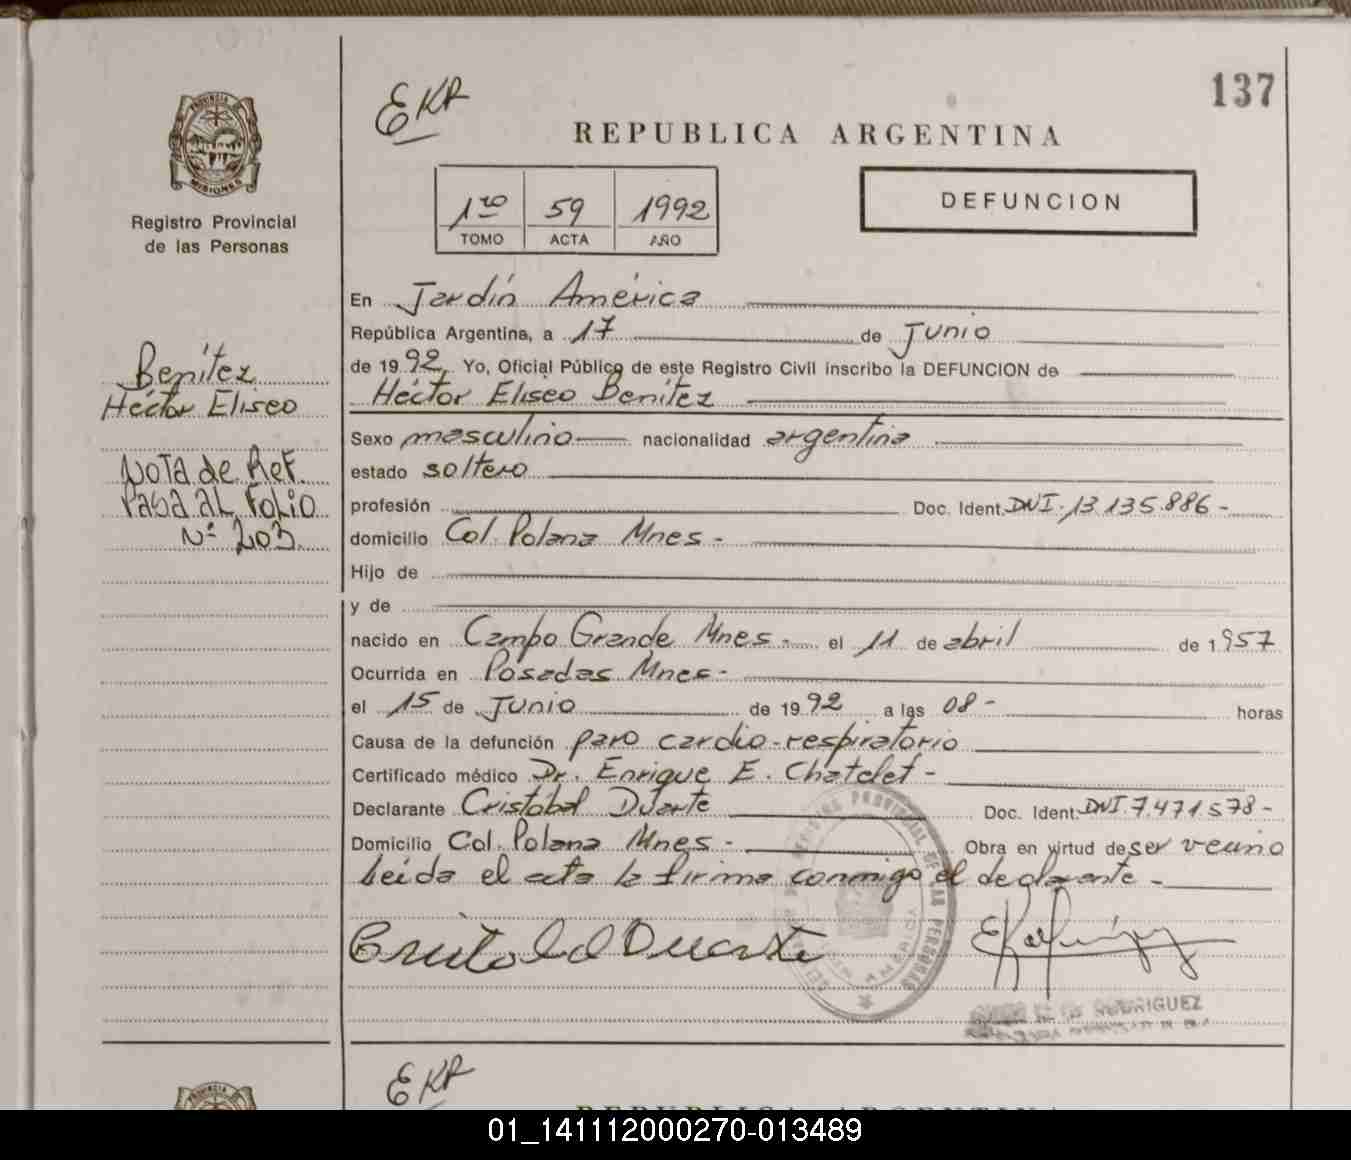 137
EKR
REPUBLICA ARGENTINA
PROVINCIA DE
MISIONES
Registro Provincial
de las Personas
1ro 59 1992
TOMO ACTA AÑO
DEFUNCION
Benítez
Héctor Eliseo
Nota de Ref.
Pasa al Folio
Nº 203
En Jardín América
República Argentina, a 17 de Junio
de 1992 Yo, Oficial Público de este Registro Civil inscribo la DEFUNCION de
Héctor Eliseo Benítez
Sexo masculino nacionalidad argentina
estado soltero
profesión Doc. Ident. DNI. 13.135.886-
domicilio Col. Polana Mnes-
Hijo de
y de
nacido en Campo Grande Mnes- el 11 de abril de 1957
Ocurrida en Posadas Mnes-
el 15 de Junio de 1992 a las 08- horas
Causa de la defunción paro cardio-respiratorio
Certificado médico Dr. Enrique E. Chatelet-
Declarante Cristobal Duarte Doc. Ident. DNI. 7.471.578-
Domicilio Col. Polana Mnes- Obra en virtud de ser vecino
Leída el acta la firma conmigo el declarante-
Cristobal Duarte
REGISTRO PROVINCIAL DE LAS PERSONAS
RODRIGUEZ
EKR
PROVINCIA DE
REPUBLICA ARGENTINA
01_141112000270-013489